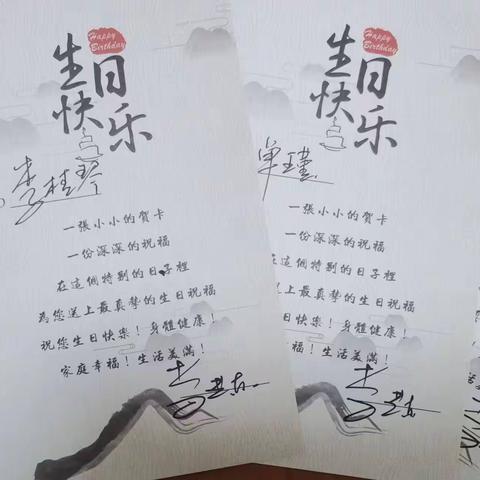 Happy
Birthday
生日
快乐
李桂琴
一張小小的賀卡
一份深深的祝福
在這個特别的日子裡
為您送上最真摯的生日祝福
祝您生日快樂！身體健康！
家庭幸福！生活美滿！
Happy
Birthday
生日
快乐
单瑾
一張小小的賀卡
一份深深的祝福
在這個特别的日子裡
送上最真摯的生日祝福
生日快樂！身體健康！
福！生活美滿！